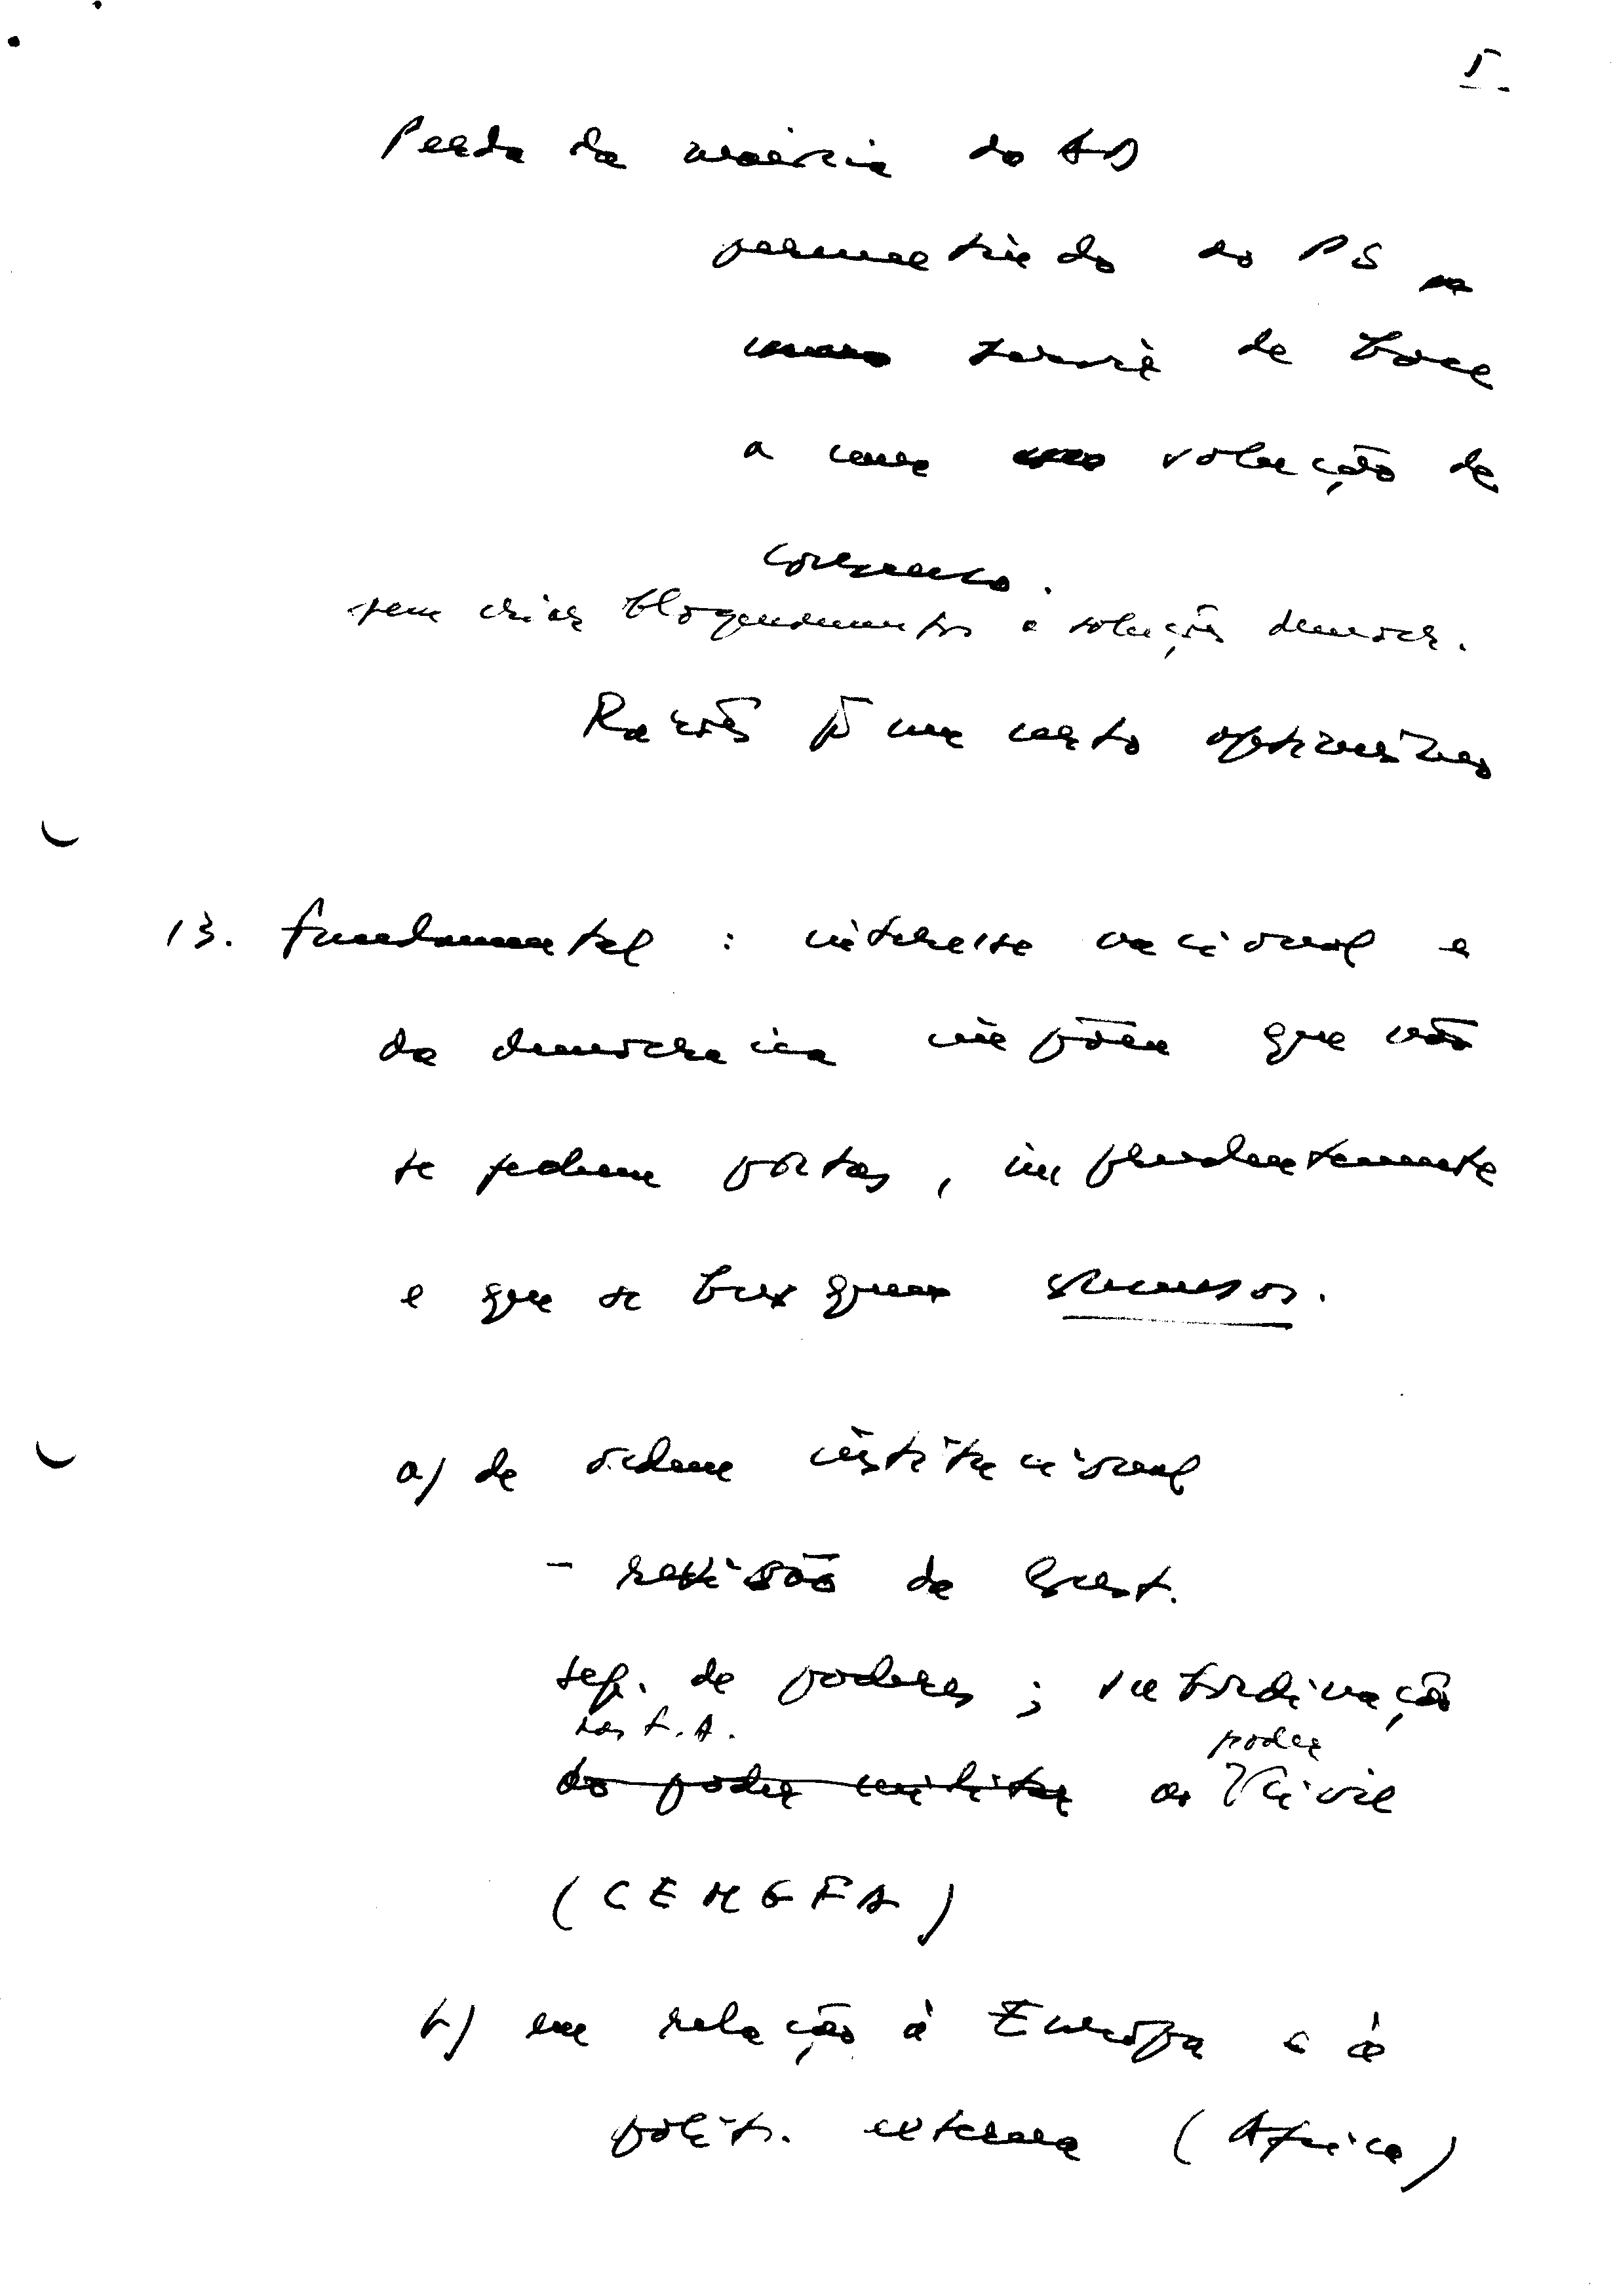 5.
Perda da maioria da AD
permitindo ao PS
servir de base
a uma solução de
consenso.
sem criar bloqueamentos à solução democr.
Razões p. um certo optimismo
13. fundamental : interesse nacional e
da democracia impõem que não
se fechem portas, imprudentemente
e que se busquem consensos.
a) de ordem institucional
- revisão da Const.
sep. de poderes ; subordinação
das F.A.
poder
do poder militar ao civil
(CEMGFA)
b) em relação à Europa e à
polít. externa (Africa)